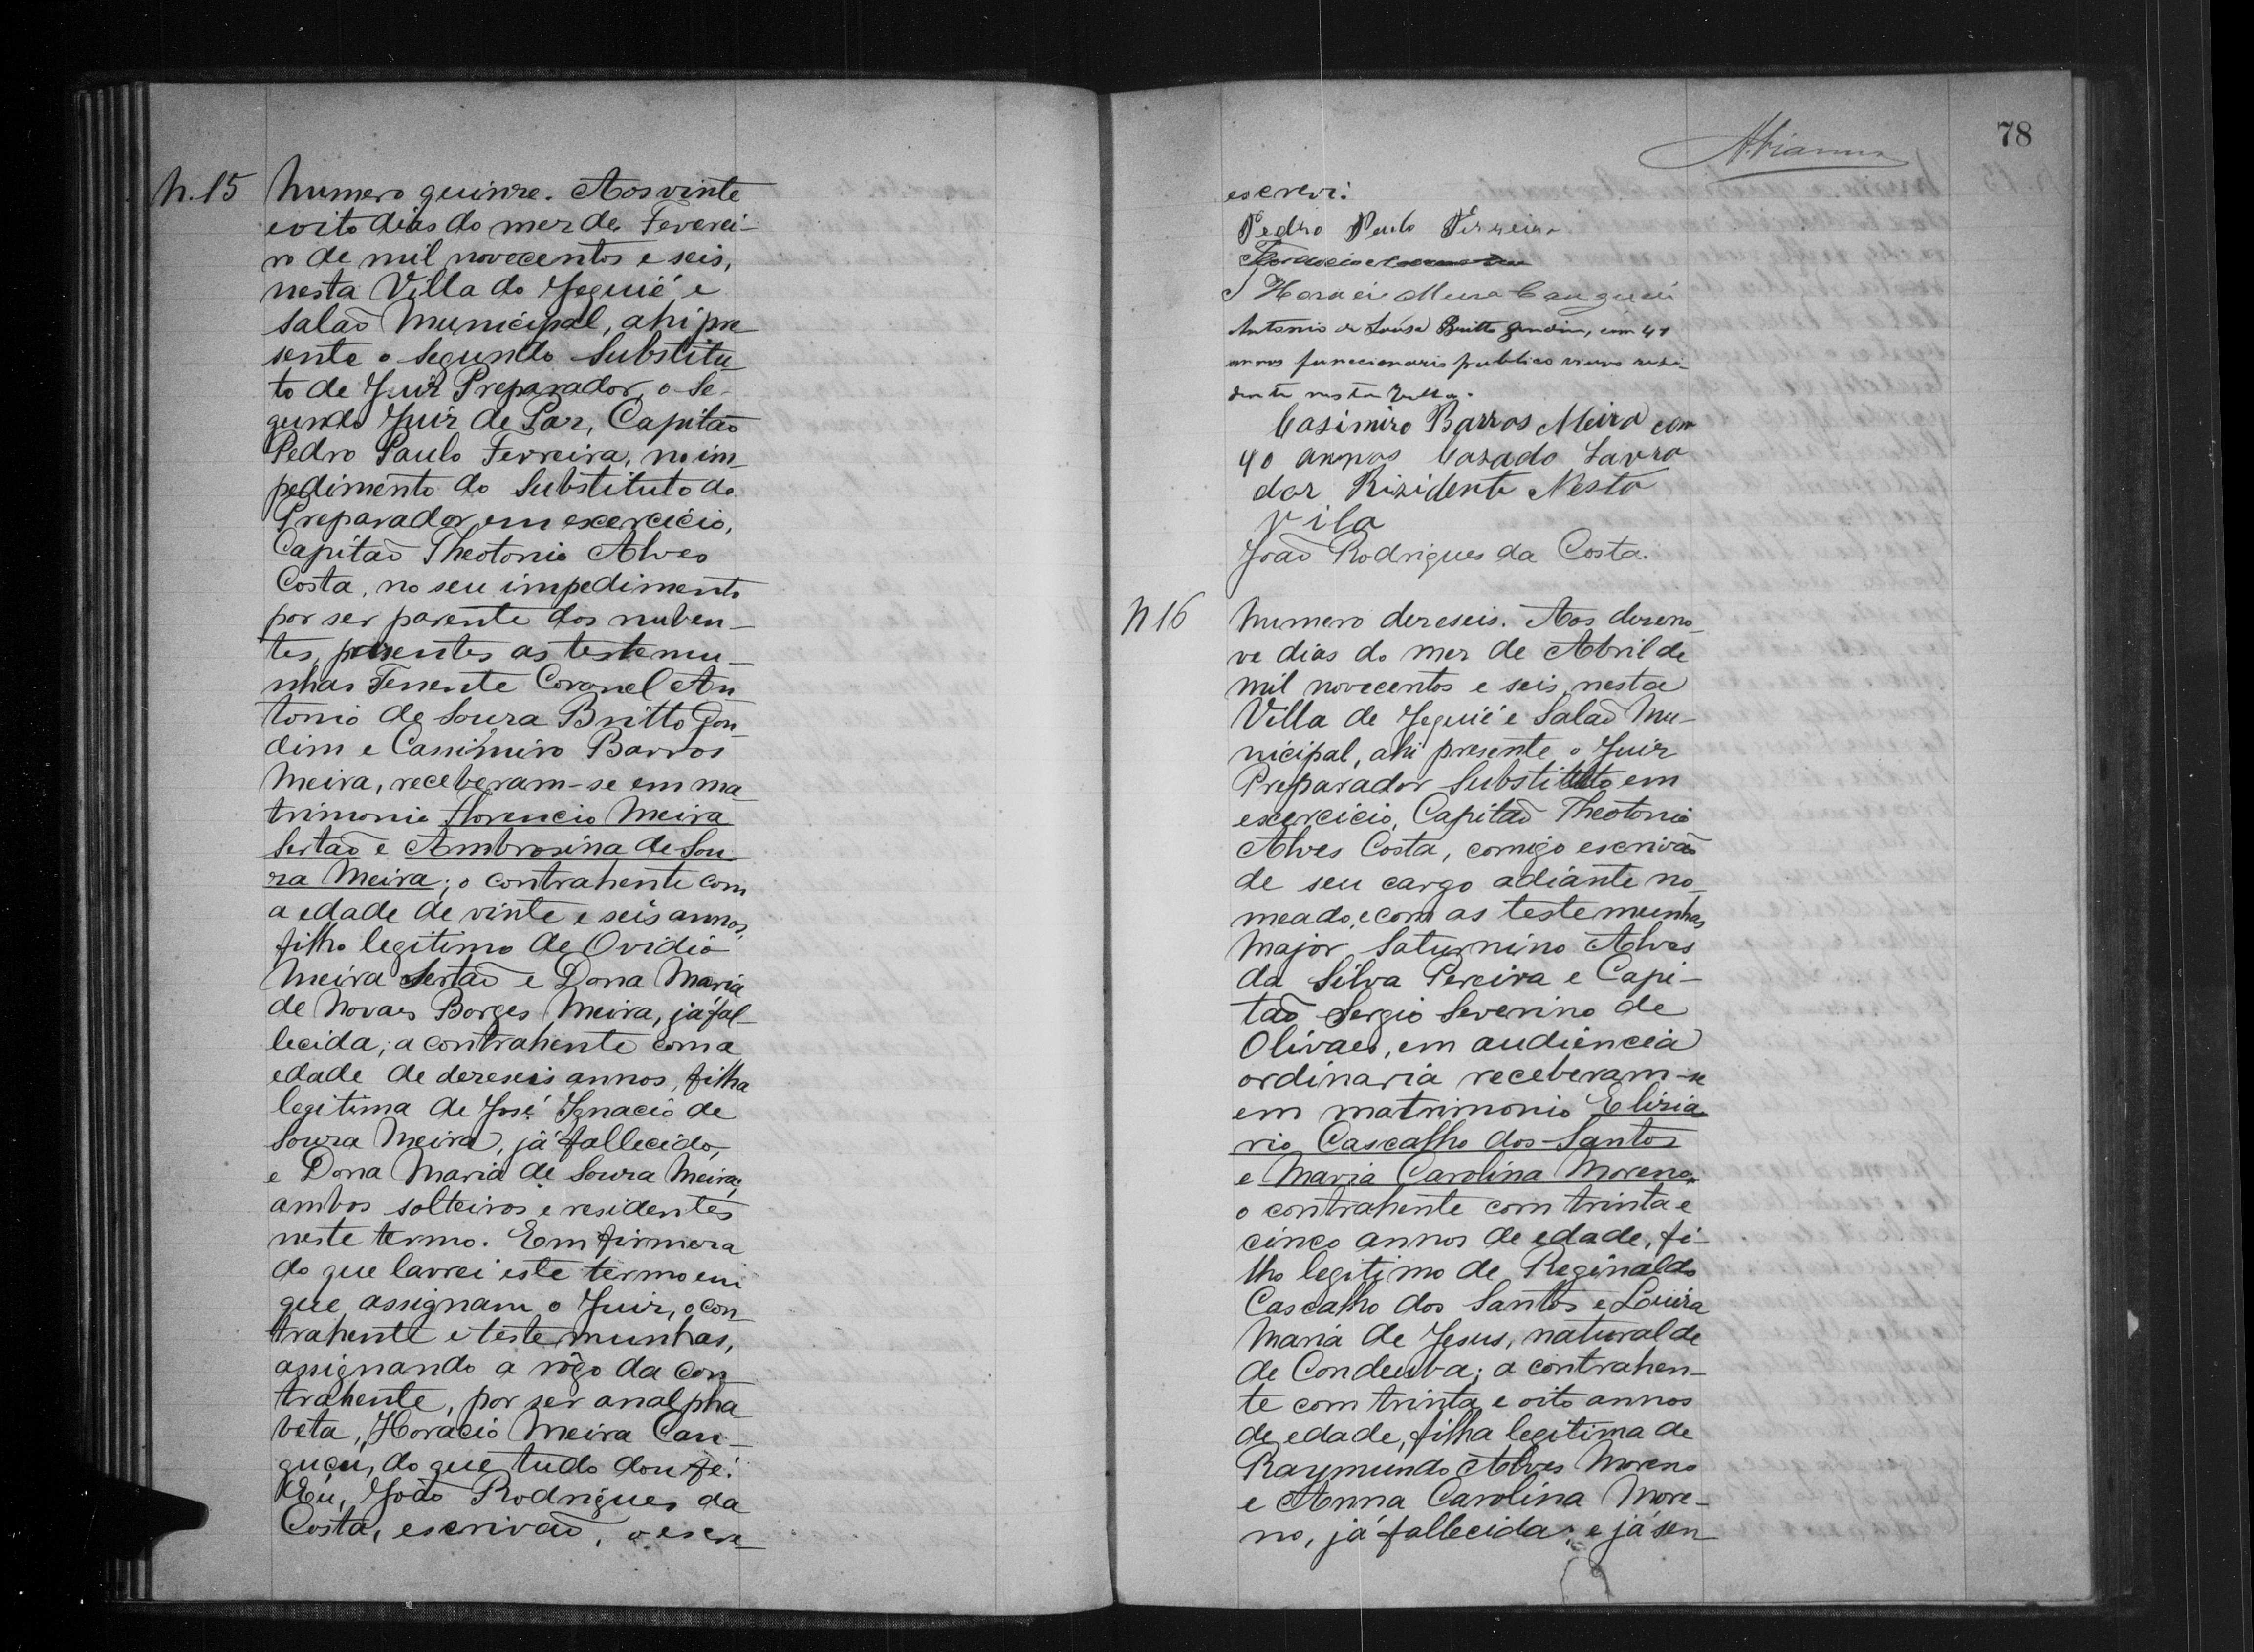 N. 15
Numero quinze. Aos vinte
e oito dias do mez de Feverei-
ro de mil novecentos e seis,
nesta Villa do Jequié e
Salaõ Municipal, ahi pre
sente o Segundo Substitu
to de Juiz Preparador, o Se-
gundo Juiz de Paz, Capitaõ
Pedro Paulo Ferreira, no im-
pedimento do Substituto do
Preparador em exercicio,
Capitaõ Theotonio Alves
Costa, no seu impedimento
por ser parente dos nuben-
tes, presentes as testemu-
nhas Tenente Coronel An
tonio de Souza Britto Gon
dim e Cassimiro Barros
Meira, receberam-se em ma
trimonio Florencio Meira
Sertaõ e Ambrosina de Sou
za Meira; o contrahente com
a edade de vinte e seis annos,
filho legitimo de Ovidio
Meira Sertaõ e Dona Maria
de Novaes Borges Meira, já fal-
lecida; a contrahente com a
edade de dezeseis annos, filha
legitima de José Ignacio de
Souza Meira, já fallecido,
e Dona Maria de Souza Meira;
ambos solteiros e residentes
neste termo. Em firmeza
do que lavrei este termo em
que assignam o Juiz, o con
trahente e testemunhas,
assignando a rôgo da con
trahente, por ser analpha
beta, Horacio Meira Can-
guçu, do que tudo dou fé.
Eu, João Rodrigues da
Costa, escrivaõ, o escre
78
escrevi.
Pedro Paulo Ferreira
Horacio Meira Canguçú
Antonio de Sousa Britto Gondim, com 41
annos funccionario publico viuvo resi-
dente nesta Villa.
Casimiro Barros Meira com
40 annos Casado Lavra
dor Rizidente Nesta
vila
Joaõ Rodrigues da Costa.
N 16
Numero dezeseis. Aos dezeno
ve dias do mez de Abril de
mil novecentos e seis, nesta
Villa de Jequié e Salaõ Mu-
nicipal, ahi presente o Juiz
Preparador Substituto em
exercicio, Capitaõ Theotonio
Alves Costa, comigo escrivaõ
de seu cargo adiante no-
meado, e com as testemunhas
Major Saturnino Alves
da Silva Pereira e Capi-
taõ Sergio Severino de
Olivaes, em audiencia
ordinaria receberam-se
em matrimonio Eliziá
rio Cascalho dos Santos
e Maria Carolina Moreno,
o contrahente com trinta e
cinco annos de edade, fi-
lho legitimo de Reginaldo
Cascalho dos Santos e Louiza
Maria de Jesus, natural de
de Condeuba; a contrahen-
te com trinta e oito annos
de edade, filha legitima de
Raymundo Alves Moreno
e Anna Carolina More-
no, já fallecida; e já sen